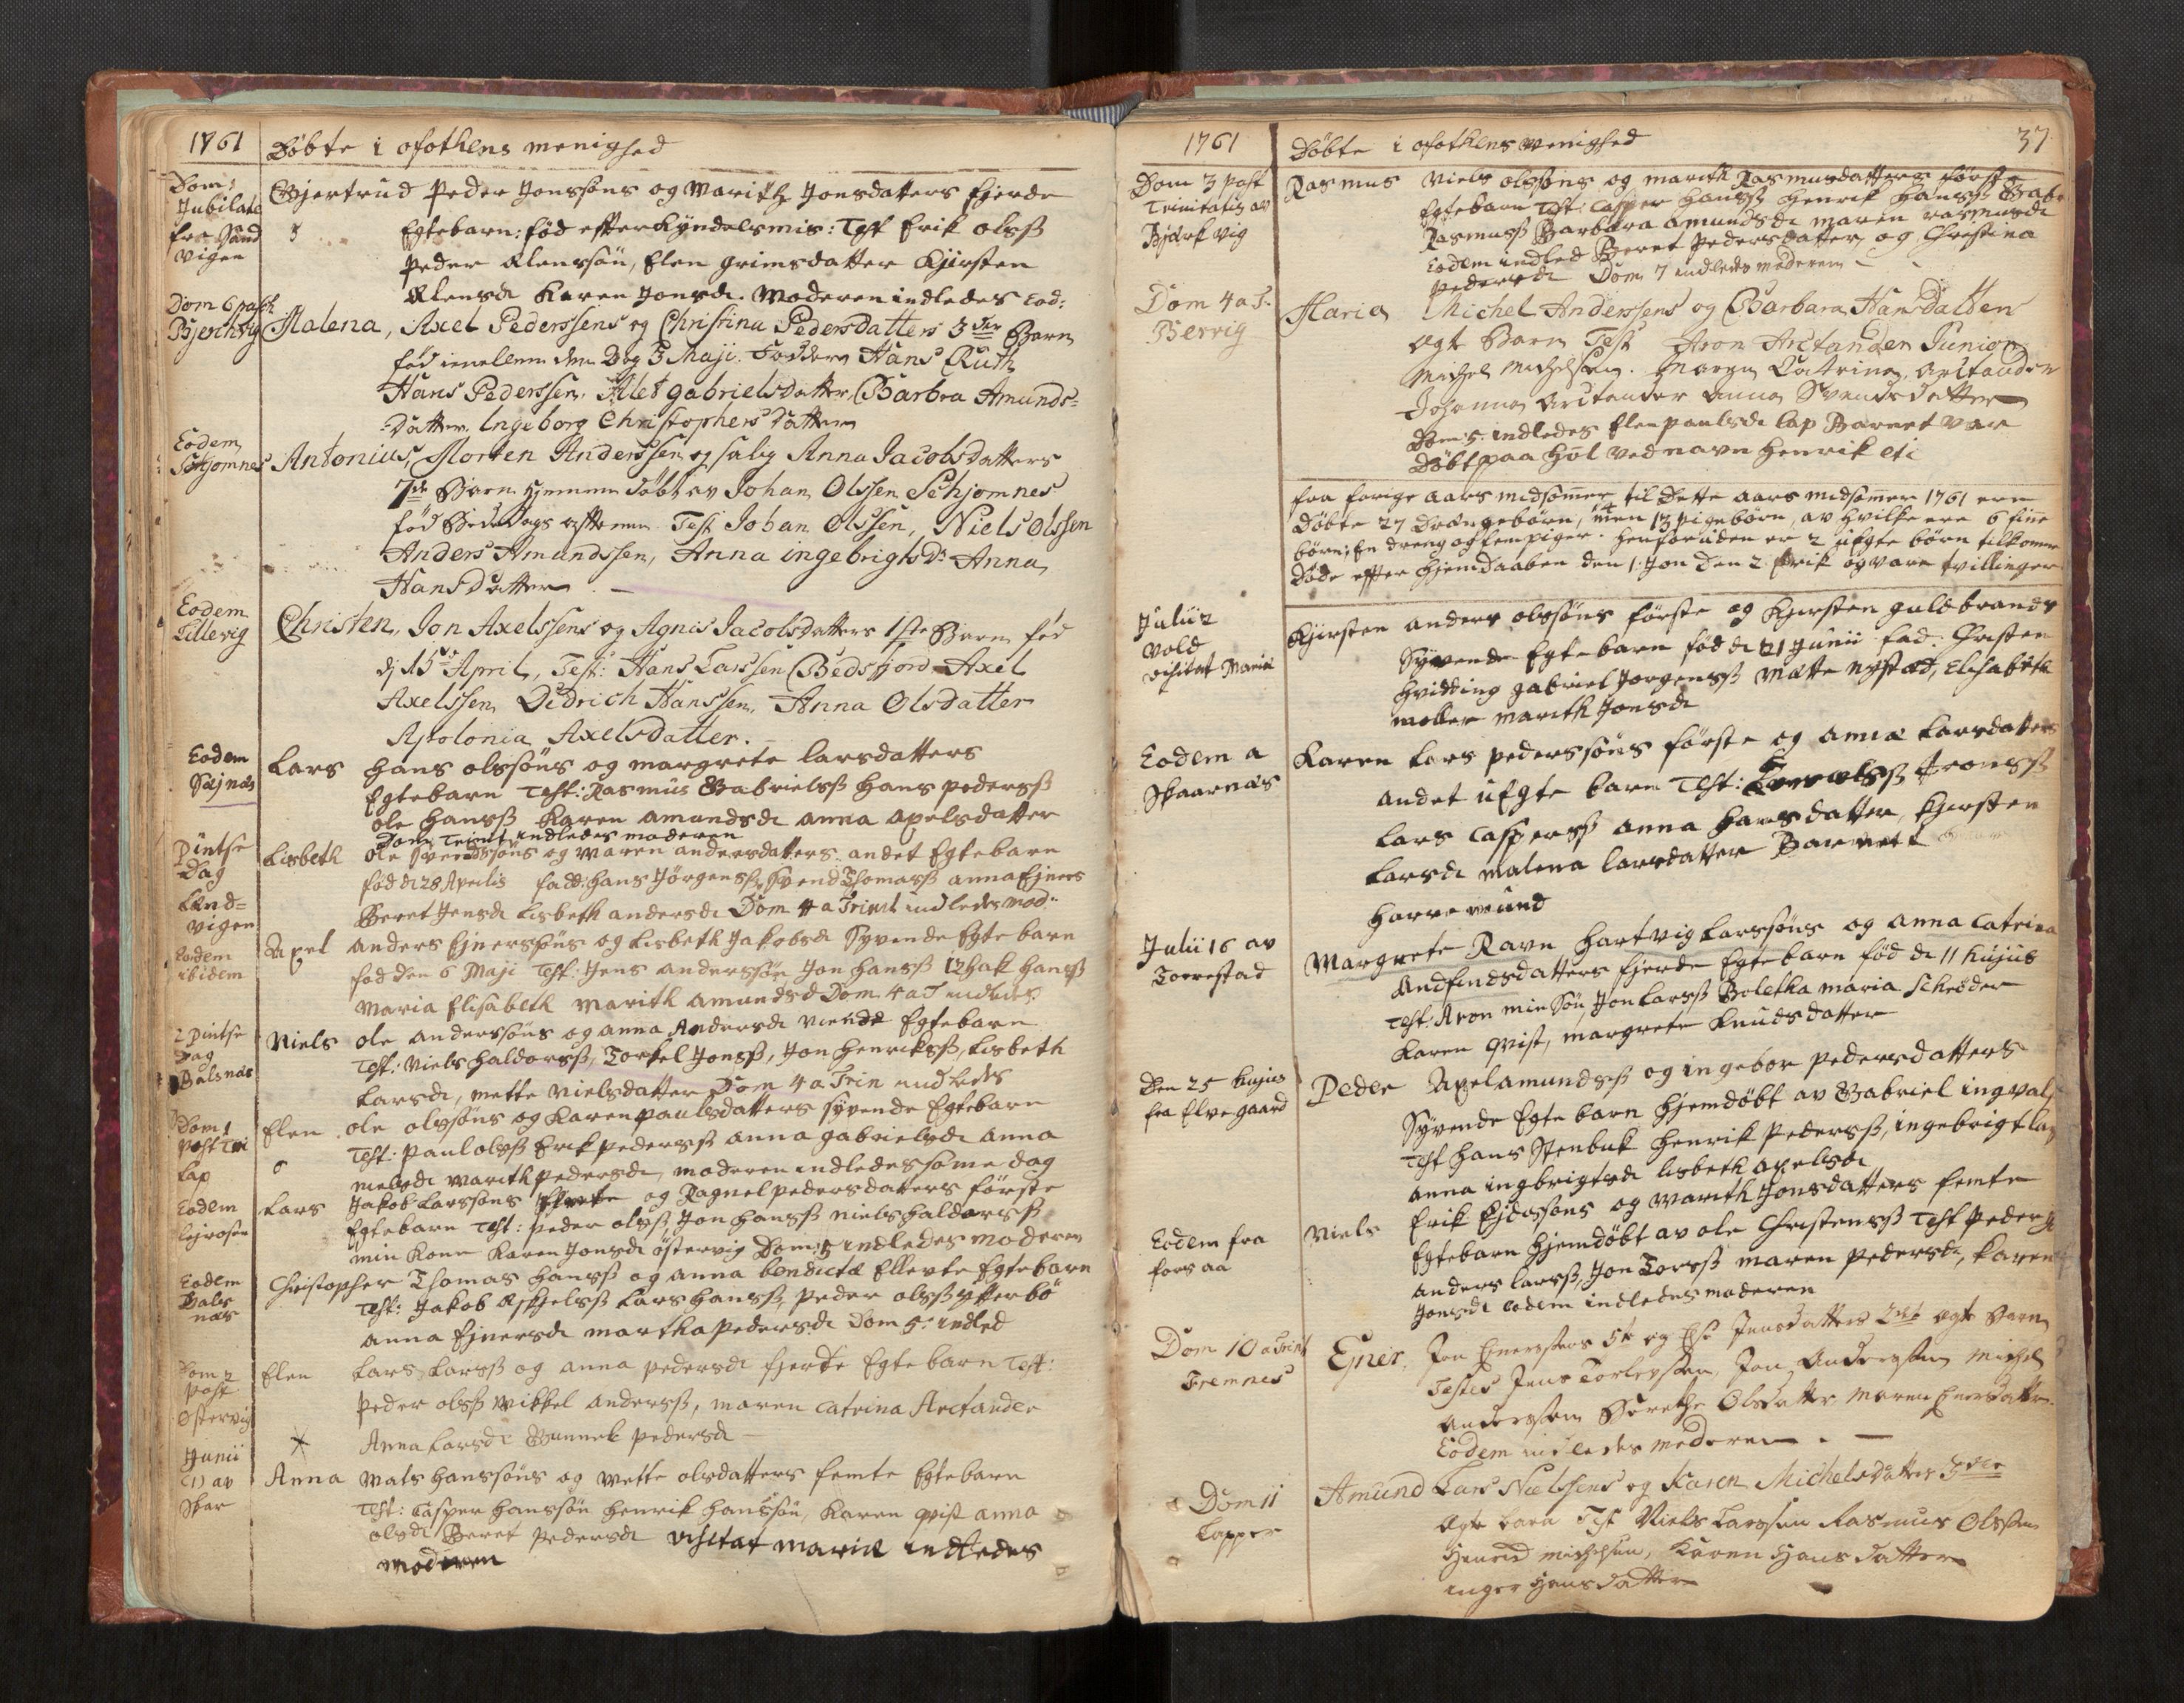 1761 Døbte i ofothens menighed
Dom: Jubilate fra Sandvigen
Gjertrud Peder Jonssøns og Marith Jonsdatters fjerde
Egtebarn: fød efter Kyndelsmis: Test Erik olsß
Peder Klenssøn, Elen grimsdatter Kjirsten
Klensdr Karen Jonsdr. Moderen indledes Eod:
Dom 6 pasch
Bjerchvig
Malena, Axel Pederssens og Christina Pedersdatters 3die Barn
fød imellem den 2 og 3 Maji. Faddere Hans Ruth
Hans Pederssen, Alet gabrielsdatter, Barbra Amunds=
Datter. Ingeborg Christophersdatter
Eodem
Schjomnes
Antonius, Morten Anderssen og salig Anna Jacobsdatters
7de Barn hjemme døbt av Johan Olssen Schjomnes
fød Bededags afften. Test Johan Olssen, Niels Olssen
Anders Amundssen, Anna ingebrigtsDr Anna
Hansdatter
Eodem
Lillevig
Christen, Jon Axelssens og Agnis Jacobsdatters 1ste Barn fød
d. 15de April, Test: Hans Larssen Bedsfjord Axel
Axelssen Didrich Hanssen, Anna Olsdatter
Apolonia Axelsdatter.
Eodem
Lars hans olssøns og margrete larsdatters
Egtebarn Test: Rasmus Gabrielsß hans pedersß
ole hansß Karen amundsdr anna axelsdatter
Dom Trinit indledes moderen
Pintse Dag
Lisbeth ole Svendssøns og maren andersdatters andet Egtebarn
fød d. 28 Aprilis fadd: hans Jørgensß Svend Thomasß anna Ejners
Beret Jensdr Lisbeth andersdr Dom 4 a Trinit indledes mod:
Eodem ibidem
Axel anders Ejnerssøns og Lisbeth Jakobsdr Syvende Egtebarn
fød den 6 Maji Test: Jens anderssøn Jon hansß hansß
Maria Elisabeth marith amundsd Dom 4 a T indledes
2 Pintse Dag
Balsnæs
Niels ole anderssøns og anna Andersdr niende Egtebarn
Test: Niels haldorsß, Torkel Jonsß, Jon henriksß, Lisbeth
Larsdr, mette nielsdatter Dom 4 a Trin indledes
Dom 1 post Tri
Elen ole olssøns og Karen paulsdatters syvende Egtebarn
Test: paul olsß Erik pedersß anna gabrielsdr anna
nielsdr marith pedersdr, moderen indledes samme dag
Eodem
Lars Jakob Larssøns og Ragnel pedersdatters første
Egtebarn Test: peder olsß, Jon hansß niels haldorsß
min Kone Karen Jonsdr østervig Dom: 5 indledes moderen
Eodem Balsnæs
Christopher Thomas hansß og anna bendictæ Ellevte Egtebarn
Test: Jakob Lars hansß, peder olsß ytterbø
anna Ejnersdr martha pedersdr Dom 5: indled
Dom 2 post
Østervig
Elen Lars Larsß og anna pedersdr fjerde Egtebarn Test:
peder olsß Mikkel andersß, maren catrina Arctander
Anna Larsdr Gunnele pedersdr
Junii av Skar
Anna Mats hanssøns og Mette olsdatters femte Egtebarn
Test: Casper hanssøn henrik hanssøn, Karen qvist anna
olsdr Beret pedersdr visitat mariæ indledes
moderen
1761 Døbte i ofothens menighed 37
Dom 3 post Trinitatis av Bjerkvig
Rasmus Niels olssøns og marith Rasmusdatters første
Egtebarn Test: Casper hansß henrik hansß
Rasmusß Barbara amundsdr maren rasmusdr
Eodem indled Beret pedersdatter og Christina
pedersdr Dom 7 indledes moderen
Dom 4 a T.
Bervig
Maria Michel Anderssens og Barbara Hansdatters
ægte Barn Test Aron Arctander Junior
Michel Michelsen. Maren Catrina Arctander
Johanna Arctander anna Svendsdatter
Dom: 5. indledes Elen paulsdr lap Barnet var
døbt paa hol ved navn henrik
fra forige aars midsommer til dette aars midsommer 1761 ere
døbte 27 drengebørn, men 13 pigebørn, av hvilke ere 6 finne
børn; En dreng og fem piger. herforuden er 2 uegte børn tilkomne
døde efter hjemdaaben den 1. Jon den 2 Erik og vare tvillinger
Julii 2
vold
visitat Mariæ
Kjirsten anders olssøns første og Kjersten guldbrands
Syvende Egtebarn fød d. 21 Junii fad: Christen
hvidding gabriel Jørgensß Mette nystad, Elisabeth
moller marith Jonsdr
Eodem a
Skaarnæs
Karen Lars pederssøns første og anna Larsdatters
andet uegte barn Test: Aronsß
Lars Caspersß anna hansdatter, Kjersten
Larsdr malena larsdatter Barnet
Julii 16 av
Toerestad
Margrete Ravn hartvig Larssøns og anna catrina
Andfindsdatters fjerde Egtebarn fød d. 11 hujus
Test: Aron min Søn Jon Larsß Boletha maria Schrøder
Karen qvist, margrete Knudsdatter
Den 25 hujus
fra Elvegaard
Peder Axel amundsß og ingebor pedersdatters
Syvende Egtebarn hjemdøbt av Gabriel ingvals
Test hans Stenbuk henrik pedersß, ingebrigt
anna ingbrigtsdr lisbeth axelsdr
Eodem fra
forsaa
Niels Erik Ejdessøns og marith Jonsdatters femte
Egtebarn hjemdøbt av ole Christensß Test peder
anders larsß, Jon Torsß maren pedersdr, Karen
Jonsdr eodem indledes moderen
Dom 10 a Trinit
Tremnes
Ejner, Jon Enerssens 5te og Else Jensdatters 2det ægte Barn
Testes Jens Torlevssen, Jon Anderssen Michel
Anderssen Berethe Olsdatter Maren Enersdatter
Eodem indledes moderen.
Dom 11
Lapper
Amund Lars Nielssens og Karen Michelsdatters 3die
ægte barn Test Niels Larssen Rasmus Olssen
Henrich Michelsen, Karen Hansdatter
inger Hansdatter